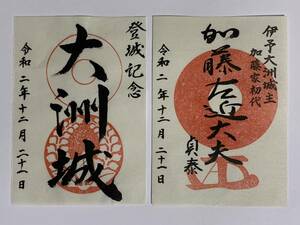 登城記念
大洲城
令和二年十二月二十一日
伊予大洲城主
加藤家初代
加藤左近大夫
貞泰
令和二年十二月二十一日